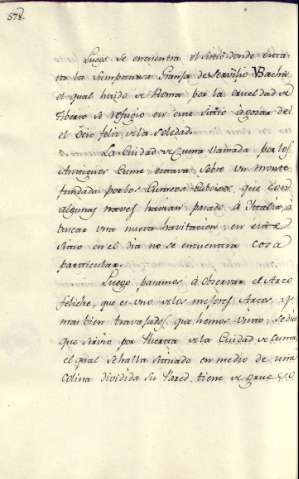 578.
Luego se encuentra el sitio donde estava
ta la Sumptuosa Granja de Servilio Bachia
el qual huido de Roma, por la crueldad de
Tiberio se refugió en este Sitio à gozar de
el Ocio felix, y la Soledad.
La Ciudad de Cuma llamada, por los
Antiguos Cume estava, sobre un monte
fundada por los Cumeos Eubicos, que con
algunas naves havian pasado à Ittalia, à
buscar una nueva havitacion, en este
Sitio en el dia no se encuentra cosa
particular.
Luego pasamos à observar el Arco
feliche, que es uno de los mejores Arcos, y
mas bien travajados, que hemos visto, se dice
que sirvio por Puerta de la Ciudad de Cuma,
el qual se halla situado en medio de una
Colina dividida su Pared, tiene de grueso